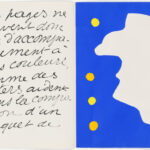 pages ne
vent donc
d'accompa
ment à
s couleurs
me des
ters aident
ns la compo
on d'un
quet de